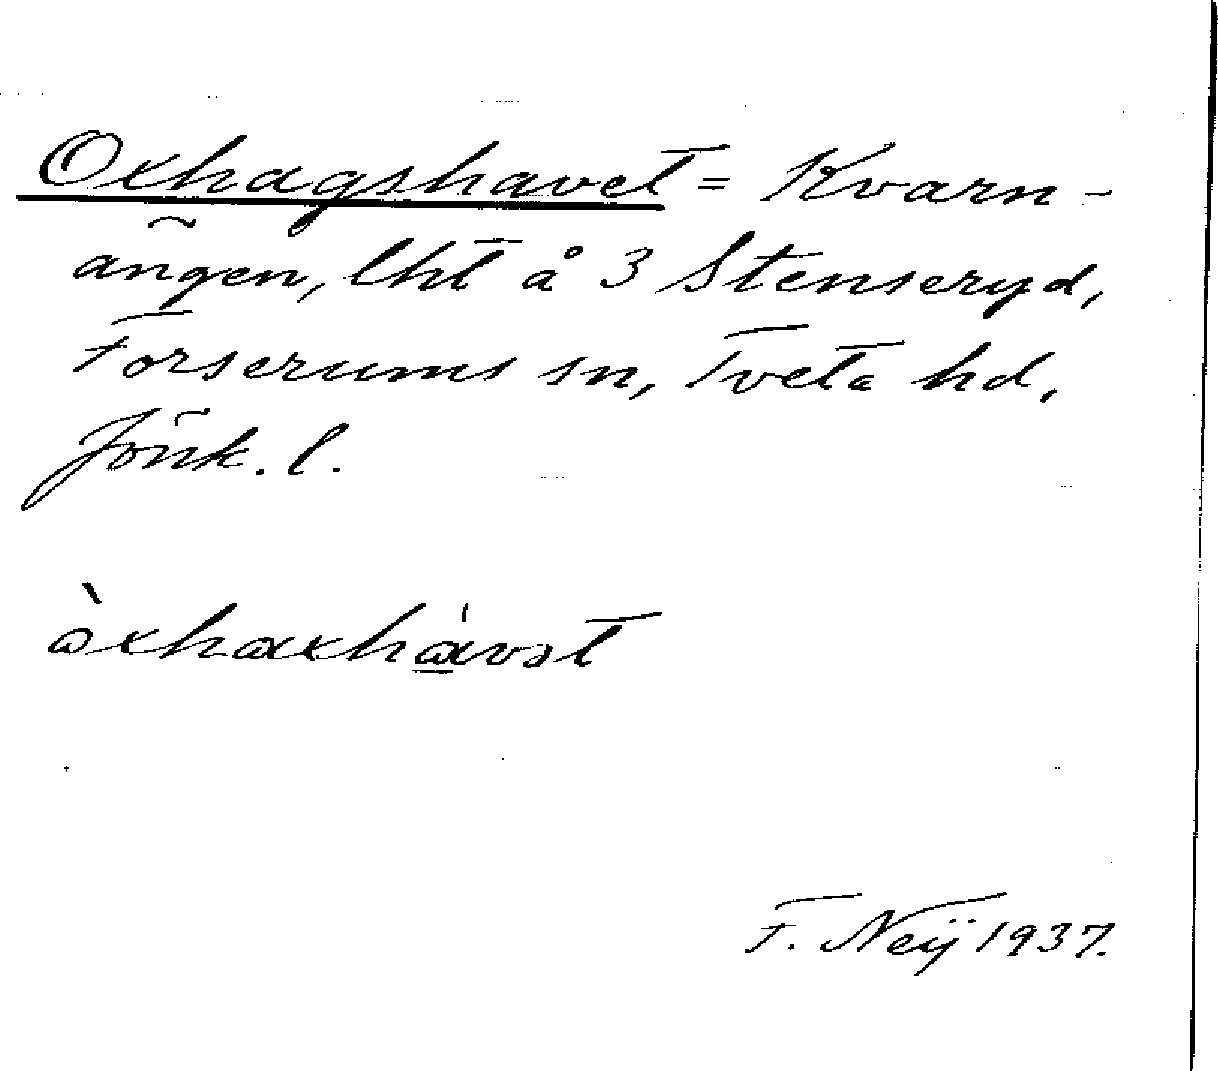 Oxhagshavet = Kvarn-
ängen, lht å 3 Stenseryd,
Forserums sn, Tveta hd,
Jönk. l.
F. Neÿ 1937.